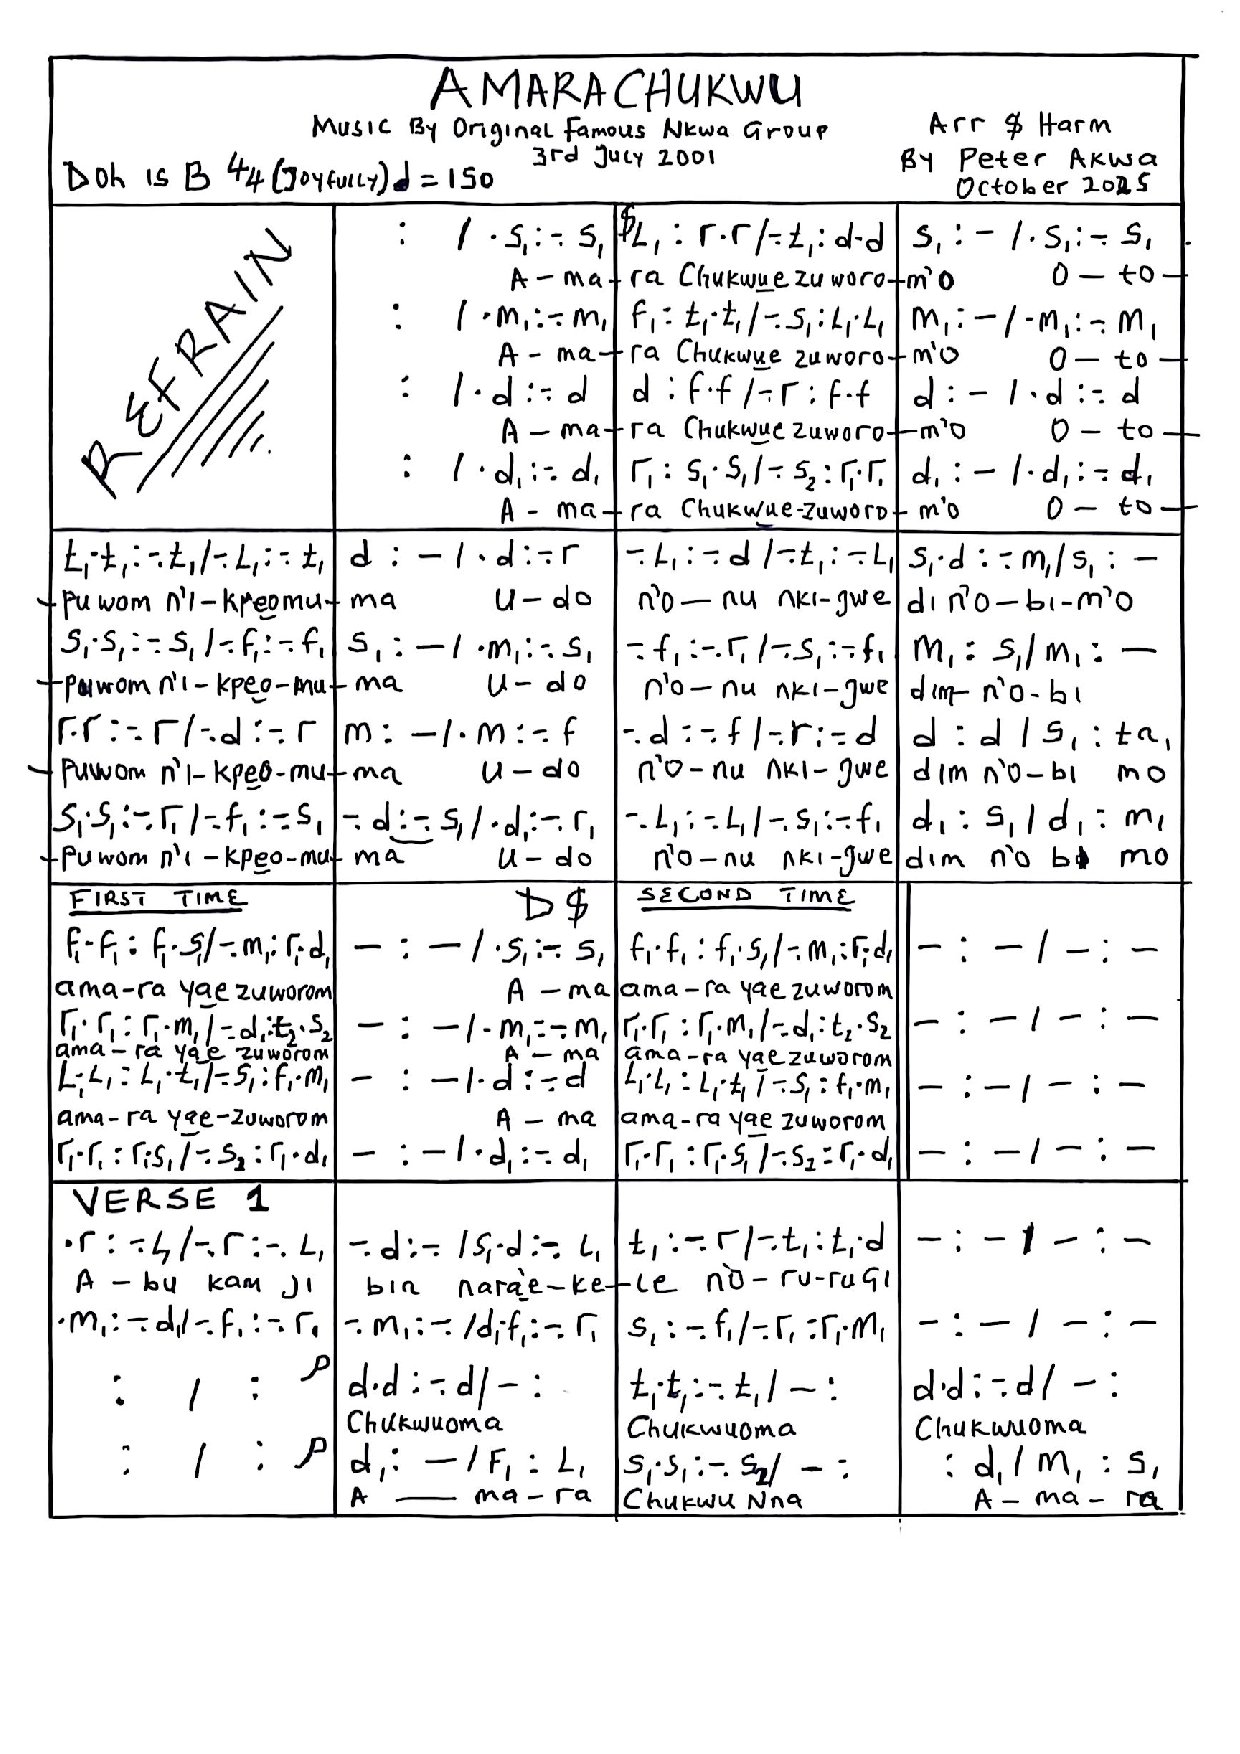 AMARACHUKWU
Music By Original Famous Nkwa Group
3rd July 2001
Arr $ Harm
By Peter Akwa
October 2025
Doh is B 4/4 (Joyfully) d = 150
REFRAIN
: / . s₁ :-. s₁ | $ L₁ : r.r /-. t₁ : d.d | s₁ : - / . s₁ :-. s₁
A - ma - ra Chukwue zuworo - m'o O - to -
: / . m₁ :-. m₁ | f₁ : t₁.t₁ /-. s₁ : L₁.L₁ | m₁ : - / . m₁ :-. m₁
A - ma - ra Chukwue zuworo - m'o O - to -
: / . d :-. d | d : f.f /-. r : f.f | d : - / . d :-. d
A - ma - ra Chukwue zuworo - m'o O - to -
: / . d₁ :-. d₁ | r₁ : s₁.s₁ /-. s₂ : r₁.r₁ | d₁ : - / . d₁ :-. d₁
A - ma - ra Chukwue-zuworo - m'o O - to -
t₁.t₁ :-. t₁ /-. L₁ :-. t₁ | d : - / . d :-. r | -. L₁ :-. d /-. t₁ :-. L₁ | s₁.d :-. m₁ / s₁ : -
- puwom n'i-kpeomu - ma U - do n'o - nu nki-gwe di n'o-bi-m'o
s₁.s₁ :-. s₁ /-. f₁ :-. f₁ | s₁ : - / . m₁ :-. s₁ | -. f₁ :-. r₁ /-. s₁ :-. f₁ | m₁ : s₁ / m₁ : -
- puwom n'i-kpeo-mu - ma U - do n'o - nu nki-gwe dim n'o-bi
r.r :-. r /-. d :-. r | m : - / . m :-. f | -. d :-. f /-. r :-. d | d : d / s₁ : ta₁
- puwom n'i-kpeo-mu - ma U - do n'o - nu nki-gwe dim n'o-bi mo
s₁.s₁ :-. r₁ /-. f₁ :-. s₁ | -. d :-. s₁ / . d₁ :-. r₁ | -. L₁ :-. L₁ /-. s₁ :-. f₁ | d₁ : s₁ / d₁ : m₁
- puwom n'i-kpeo-mu - ma U - do n'o - nu nki-gwe dim n'o bi mo
FIRST TIME D$ SECOND TIME
f₁.f₁ : f₁.s₁ /-. m₁ : r₁.d₁ | - : - / . s₁ :-. s₁ | f₁.f₁ : f₁.s₁ /-. m₁ : r₁.d₁ | - : - / - : -
ama-ra yae zuworom A - ma ama-ra yae zuworom
r₁.r₁ : r₁.m₁ /-. d₁ : t₂.s₂ | - : - / . m₁ :-. m₁ | r₁.r₁ : r₁.m₁ /-. d₁ : t₂.s₂ | - : - / - : -
ama-ra yae zuworom A - ma ama-ra yae zuworom
L₁.L₁ : L₁.t₁ /-. s₁ : f₁.m₁ | - : - / . d :-. d | L₁.L₁ : L₁.t₁ /-. s₁ : f₁.m₁ | - : - / - : -
ama-ra yae-zuworom A - ma ama-ra yae zuworom
r₁.r₁ : r₁.s₁ /-. s₂ : r₁.d₁ | - : - / . d₁ :-. d₁ | r₁.r₁ : r₁.s₁ /-. s₂ : r₁.d₁ | - : - / - : -
VERSE 1
. r :-. L₁ /-. r :-. L₁ | -. d :-. / s₁.d :-. L₁ | t₁ :-. r /-. t₁ : t₁.d | - : - / - : -
A - bu kam ji bia nara'e-ke - le n'o - ru-ru Gi
. m₁ :-. d₁ /-. f₁ :-. r₁ | -. m₁ :-. / d₁.f₁ :-. r₁ | s₁ :-. f₁ /-. r₁ : r₁.m₁ | - : - / - : -
: / : p | d.d :-. d / - : | t₁.t₁ :-. t₁ / - : | d.d :-. d / - :
Chukwuoma Chukwuoma Chukwuoma
: / : p | d₁ : - / F₁ : L₁ | s₁.s₁ :-. s₂ / - : | : d₁ / m₁ : s₁
A - ma - ra Chukwu Nna A - ma - ra